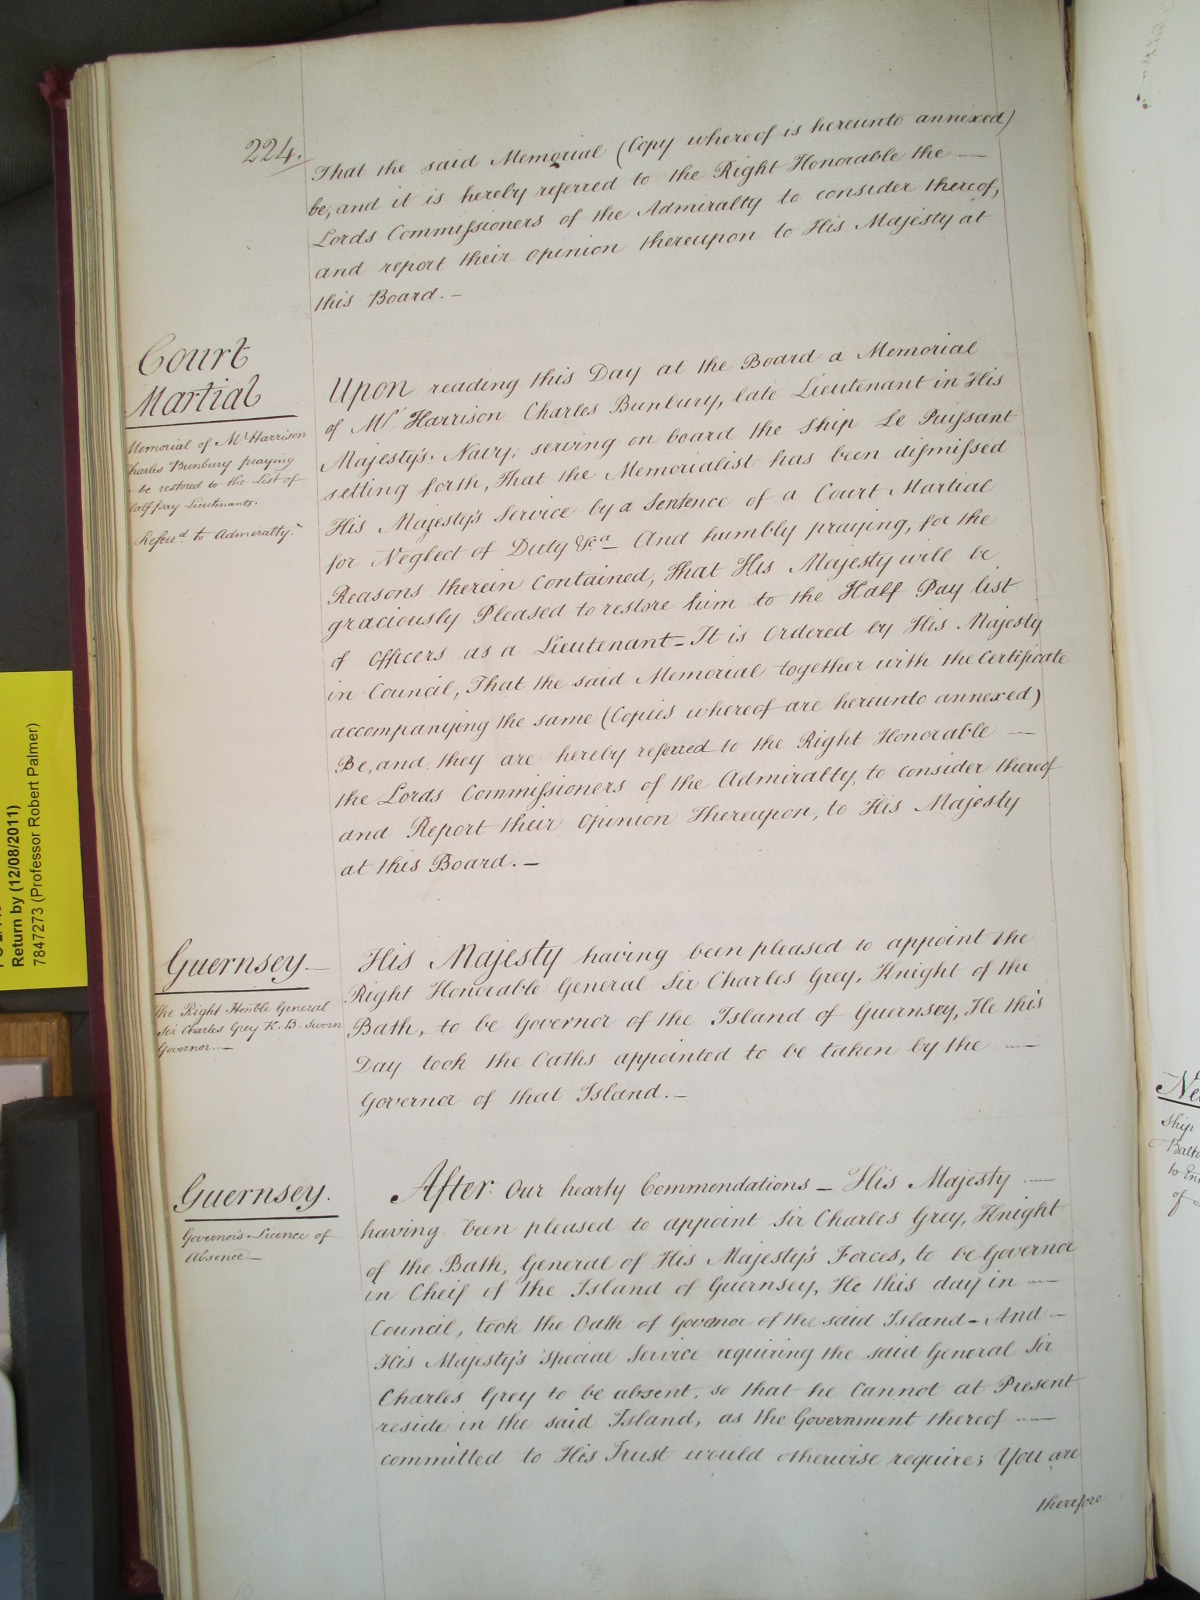 224.
That the said Memorial (Copy whereof is hereunto annexed)
be, and it is hereby referred to the Right Honorable the —
Lords Commissioners of the Admiralty to consider thereof,
and report their opinion thereupon to His Majesty at
this Board. —
Court
Martial
Memorial of Mr. Harrison
Charles Bunbury praying
be restored to the List of
half pay Lieutenants.
Referrd. to Admiralty.
Upon reading this Day at the Board a Memorial
of Mr. Harrison Charles Bunbury, late Lieutenant in His
Majesty's Navy, serving on board the ship Le Puissant
setting forth, That the Memorialist has been dismissed
His Majesty's Service by a Sentence of a Court Martial
for Neglect of Duty &ca — And humbly praying, for the
Reasons therein contained, that His Majesty will be
graciously Pleased to restore him to the Half Pay list
of Officers as a Lieutenant — It is Ordered by His Majesty
in Council, That the said Memorial together with the Certificate
accompanying the same (Copies whereof are hereunto annexed)
Be, and they are hereby referred to the Right Honorable —
the Lords Commissioners of the Admiralty, to consider thereof
and Report their Opinion Thereupon, to His Majesty
at this Board. —
Guernsey —
the Right Honble General
Sir Charles Grey K. B. sworn
Governor. —
His Majesty having been pleased to appoint the
Right Honorable General Sir Charles Grey, Knight of the
Bath, to be Governor of the Island of Guernsey, He this
Day took the Oaths appointed to be taken by the —
Governor of that Island. —
Guernsey.
Governor's Licence of
Absence —
After Our hearty Commendations — His Majesty —
having been pleased to appoint Sir Charles Grey, Knight
of the Bath, General of His Majesty's Forces, to be Governor
in Cheif of the Island of Guernsey, He this day in —
Council, took the Oath of Governor of the said Island — And —
His Majesty's Special Service requiring the said General Sir
Charles Grey to be absent, so that he Cannot at Present
reside in the said Island, as the Government thereof —
committed to His Trust would otherwise require; You are
therefore
Return by (12/08/2011)
7847273 (Professor Robert Palmer)
Ship
of